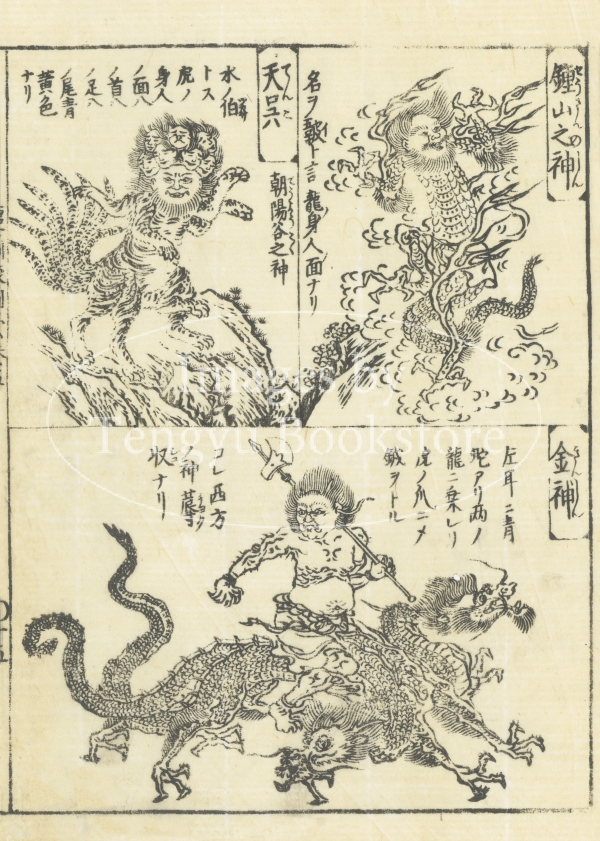 鍾山之神
名ヲ鼓ト言龍身人面ナリ
天吳
朝陽谷之神
水ノ伯
トス
虎ノ
身人
ノ面八
ノ首八
ノ足八
ノ尾青
黄色
ナリ
金神
左耳ニ青
蛇アリ両ノ
龍ニ乗レリ
虎ノ爪ニメ
鉞ヲトル
コレ西方
ノ神蓐
収ナリ
Images by
Tengyu Bookstore